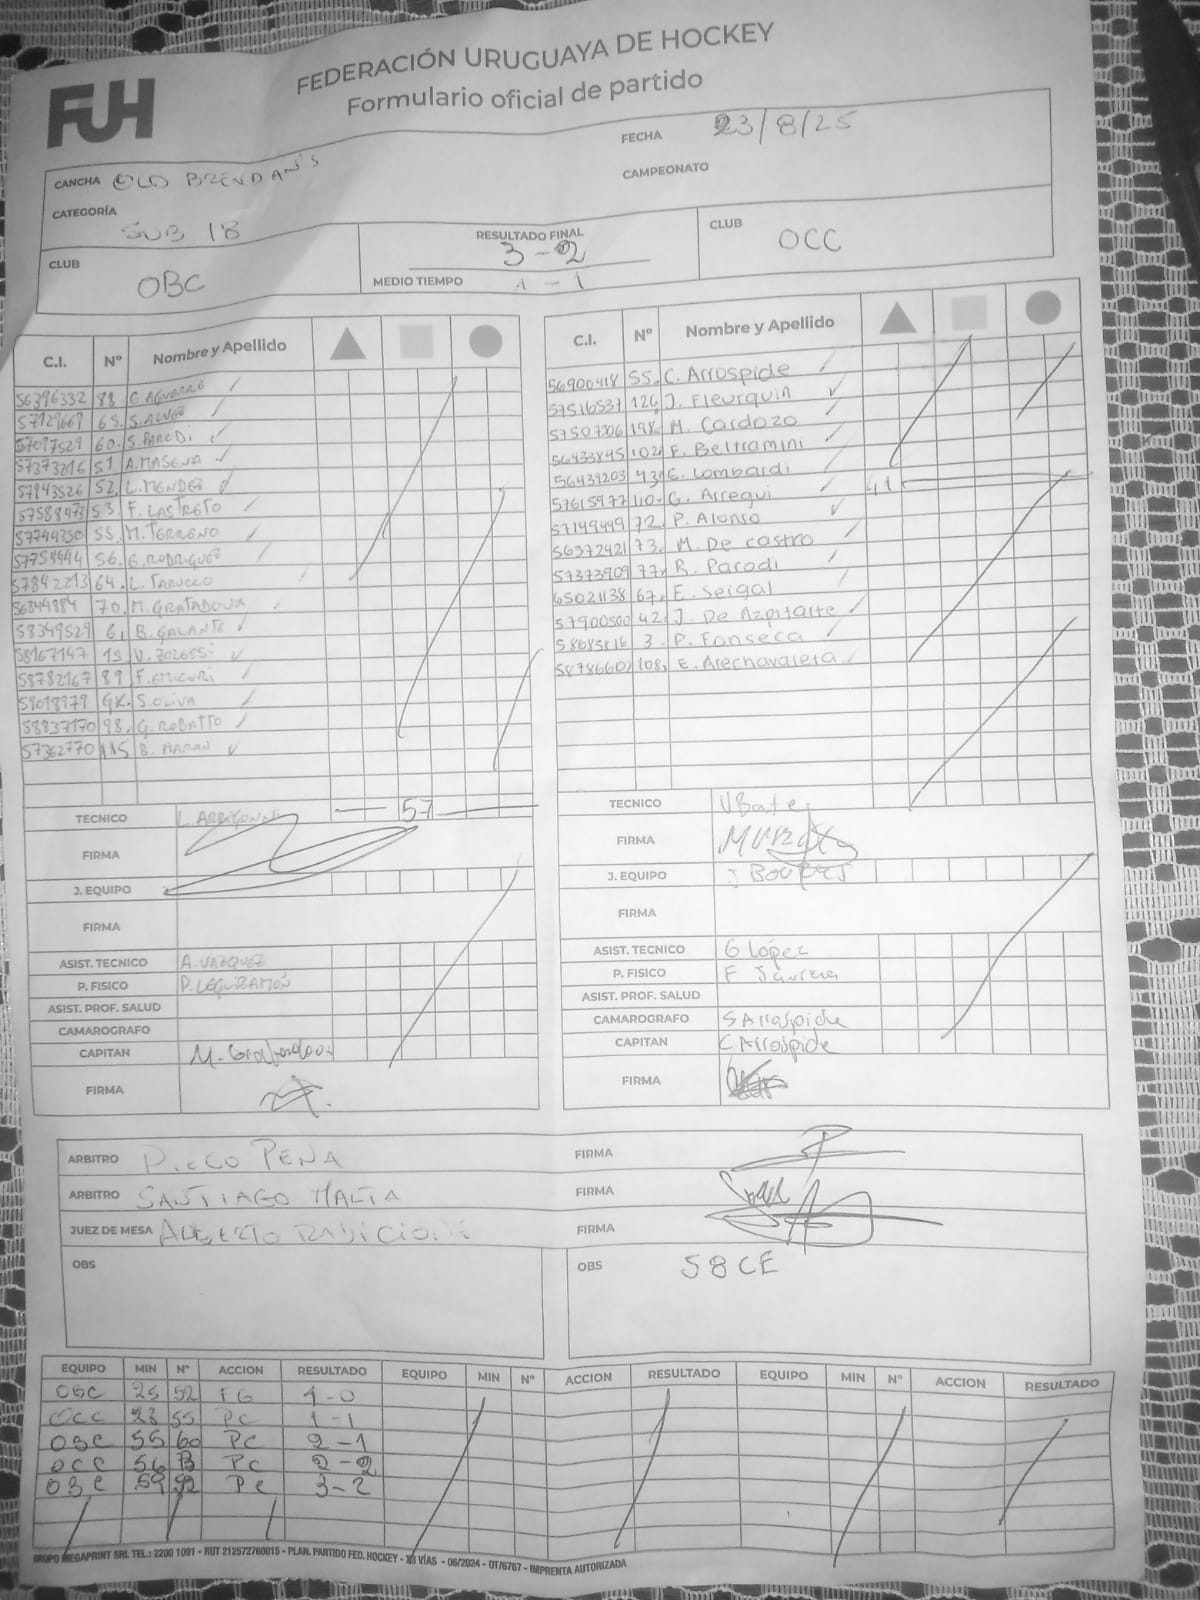 FUH
FEDERACIÓN URUGUAYA DE HOCKEY
Formulario oficial de partido
FECHA 23/8/25
CANCHA OLD BRENDAN'S
CAMPEONATO
CATEGORÍA SUB 18
CLUB OBC
RESULTADO FINAL 3-2
MEDIO TIEMPO 1-1
CLUB OCC
C.I. Nº Nombre y Apellido
56396332 88. C. AGUERRE
57129669 63. S. ALVES
57097529 60. S. PARODI
57373216 51 A. MASENA
57943526 52. L. MENDEZ
57588473 53. F. LASTRETO
57744350 55. M. TERRENO
57754444 56. G. RODRIGUEZ
57842213 64. L. TARUCCO
56844884 70. M. GRATADOUX
58349529 6. B. GALANTE
58167147 15 V. ZOLESSI
58782167 89 F. EMICURI
59018979 GK. S. OLIVA
58837170 98. G. ROBATTO
57362770 115 B. MARAN
TECNICO L. ARRIGONNI 57
FIRMA
J. EQUIPO
FIRMA
ASIST. TECNICO A. VAZQUEZ
P. FISICO P. LEGUIZAMÓN
ASIST. PROF. SALUD
CAMAROGRAFO
CAPITAN M. Gratadoux
FIRMA
C.I. Nº Nombre y Apellido
56900418 55. C. Arrospide
57516537 126. J. Fleurquin
57507306 198. M. Cardozo
56433845 102. F. Beltramini
56431203 43. E. Lombardi
57615977 110. G. Arregui 41
57149449 72. P. Alonso
56372421 73. M. De castro
57373909 77. R. Parodi
65021138 67. E. Seigal
57900500 42. J. De Azpitarte
58685816 3. P. Fonseca
58786602 108. E. Arechavaleta
TECNICO V Bate
FIRMA
J. EQUIPO
FIRMA
ASIST. TECNICO G López
P. FISICO F
ASIST. PROF. SALUD
CAMAROGRAFO S Arrospide
CAPITAN C Arrospide
FIRMA
ARBITRO DIEGO PEÑA FIRMA
ARBITRO SANTIAGO MALTA FIRMA
JUEZ DE MESA ALBERTO RADICIONI FIRMA
OBS
OBS 58 CE
EQUIPO MIN Nº ACCION RESULTADO EQUIPO MIN Nº ACCION RESULTADO EQUIPO MIN Nº ACCION RESULTADO
OBC 25 52 FG 1-0
OCC 28 55 PC 1-1
OBC 55 60 PC 2-1
OCC 56 73 PC 2-2
OBC 59 52 PC 3-2
GRUPO MEGAPRINT SRL TEL.: 2200 1091 - RUT 212572760015 - PLAN. PARTIDO FED. HOCKEY - X3 VÍAS - 06/2024 - OT/6767 - IMPRENTA AUTORIZADA